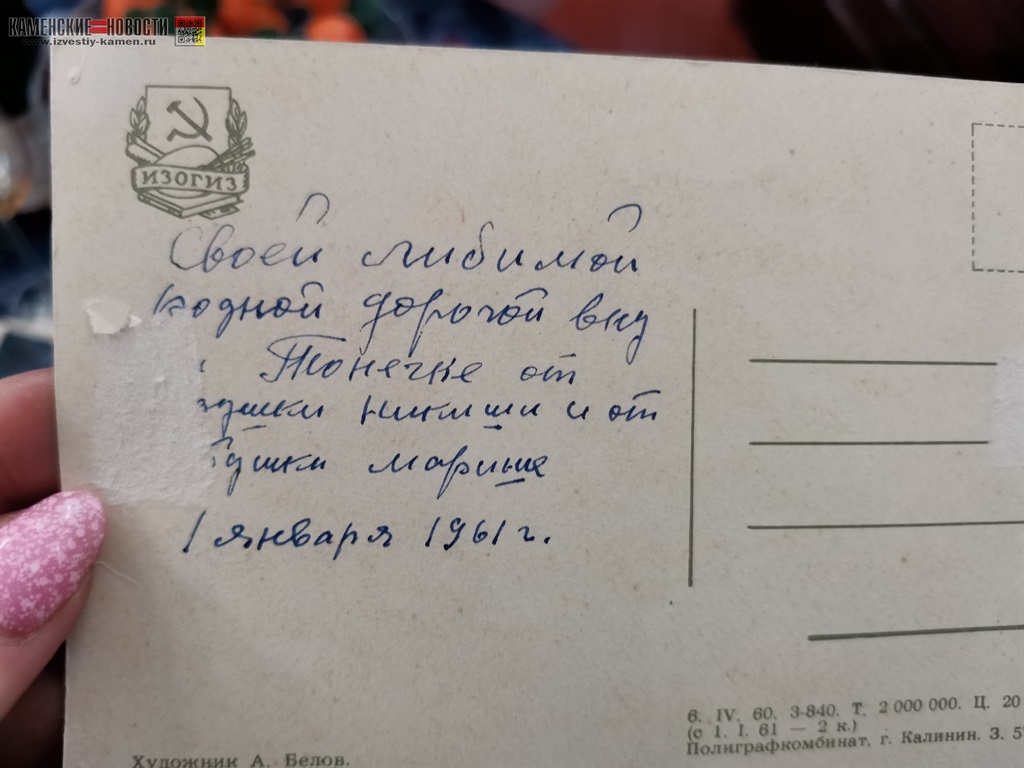 КАМЕНСКИЕ НОВОСТИ
www.izvestiy-kamen.ru
ИЗОГИЗ
Своей любимой
родной дорогой вну
Тонечке от
душки и от
бушки
1 января 1961 г.
6. IV. 60. 3-840. Т. 2 000 000. Ц. 20
(с 1. I. 61 — 2 к.)
Полиграфкомбинат, г. Калинин. З. 5
Художник А. Белов.